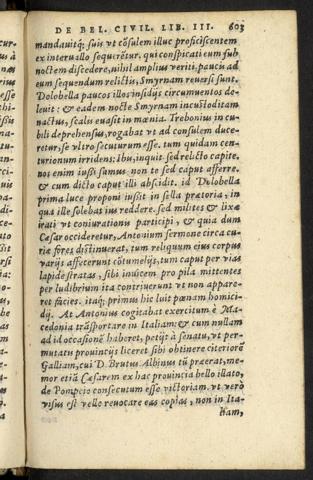 DE BEL. CIVIL. LIB. III. 603
mandauitq́; suis vt cōsulem illuc proficiscentem
ex interuallo sequerētur. qui conspicati eum sub
noctem discedere, nihil amplius veriti, paucis ad
eum sequendum relictis, Smyrnam reuersi sunt.
Dolobella paucos illos insidijs circumuentos de-
leuit: & eadem nocte Smyrnam incustoditam
nactus, scalis euasit in mœnia. Trebonius in cu-
bili deprehensus, rogabat vt ad consulem duce-
retur, se vltro secuturum esse. tum quidam cen-
turionum irridens: Ibu, inquit sed relicto capite,
nos enim iussi sumus non te sed caput afferre.
& cum dicto caput illi abscidit. id Dolobella
prima luce proponi iussit in sella prætoria, in
qua ille solebat ius reddere. sed milites & lixæ
irati vt coniurationis participi, & quia dum
Cæsar occideretur, Antonium sermone circa cu-
riæ fores distinuerat, tum reliquum eius corpus
varijs affecerunt cōtumelijs, tum caput per vias
lapide stratas, sibi inuicem pro pila mittentes
per ludibrium ita contriuerunt vt non appare-
ret facies. itaq́; primus hic luit pœnam homici-
dij. At Antonius cogitabat exercitum è Ma-
cedonia trāsportare in Italiam: & cum nullam
ad id occasionē haberet, petijt à senatu, vt per-
mutatis prouincijs liceret sibi obtinere citeriorē
Galliam, cui D. Brutus Albinus tū præerat, me-
mor etiā Cæsarem ex hac prouincia bello illato,
de Pompeio consecutum esse victoriam. vt verò
visus est velle reuocare eas copias, non in Ita-
liam,